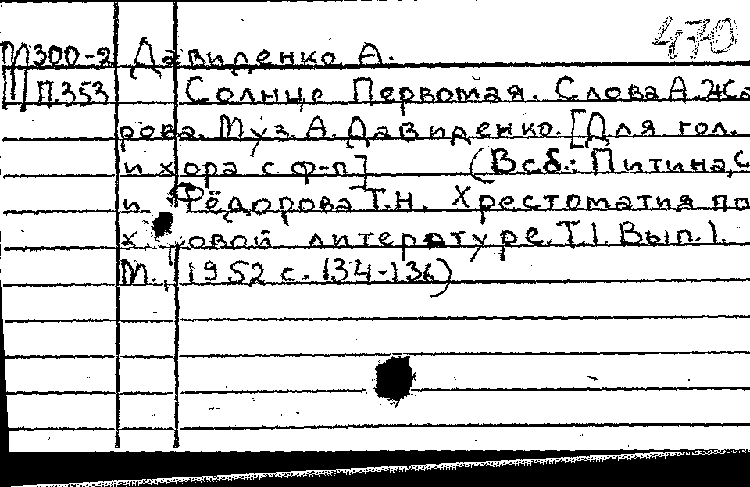 470
М300-2 Давиденко А.
П.353 Солнце Первомая. Слова А. Жа
рова. Муз. А. Давиденко. [Для гол.
и хора с ф-п] (В сб.: Питина, С
и Фёдорова Т.Н. Хрестоматия по
х овой литературе. Т.1. Вып.1.
М., 1952 с. 134-136)